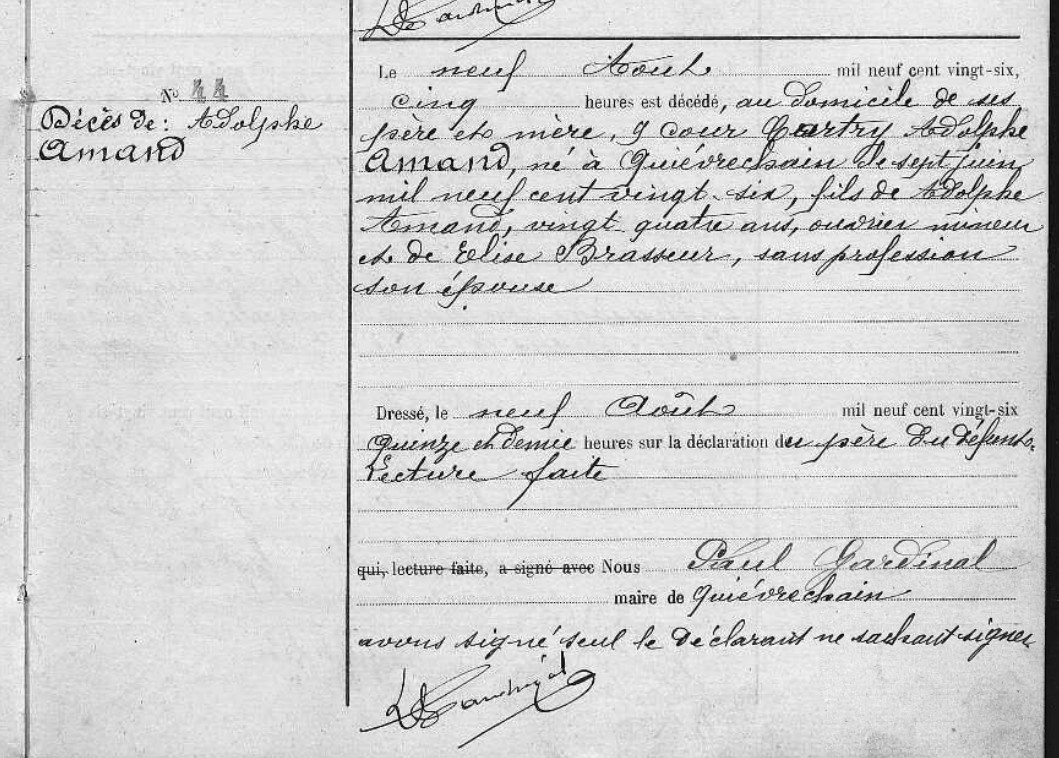 Nº 44
Décès de: Adolphe
Amand
Le neuf Août mil neuf cent vingt-six,
cinq heures est décédé, au domicile de ses
père et mère, 9 cour Cartry Adolphe
Amand, né à Quiévrechain le sept juin
mil neuf cent vingt-six, fils de Adolphe
Amand, vingt quatre ans, ouvrier mineur
et de Elise Brasseur, sans profession
son épouse
Dressé, le neuf Août mil neuf cent vingt-six
quinze et demie heures sur la déclaration du père du défunt.
Lecture faite
qui, lecture faite, a signé avec Nous Paul Gardinal
maire de Quiévrechain
avons signé seul le déclarant ne sachant signer